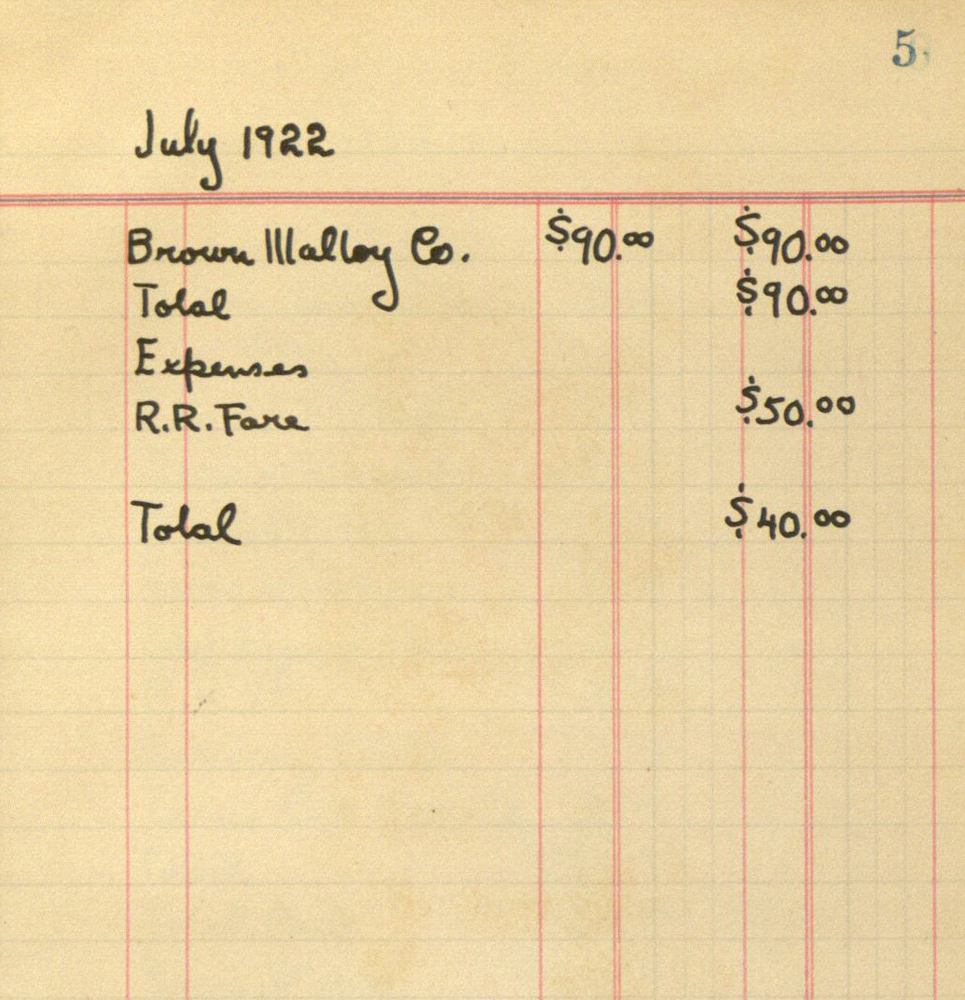 5
July 1922
Brown Malloy Co. $90.00 $90.00
Total $90.00
Expenses
R.R. Fare $50.00
Total $40.00